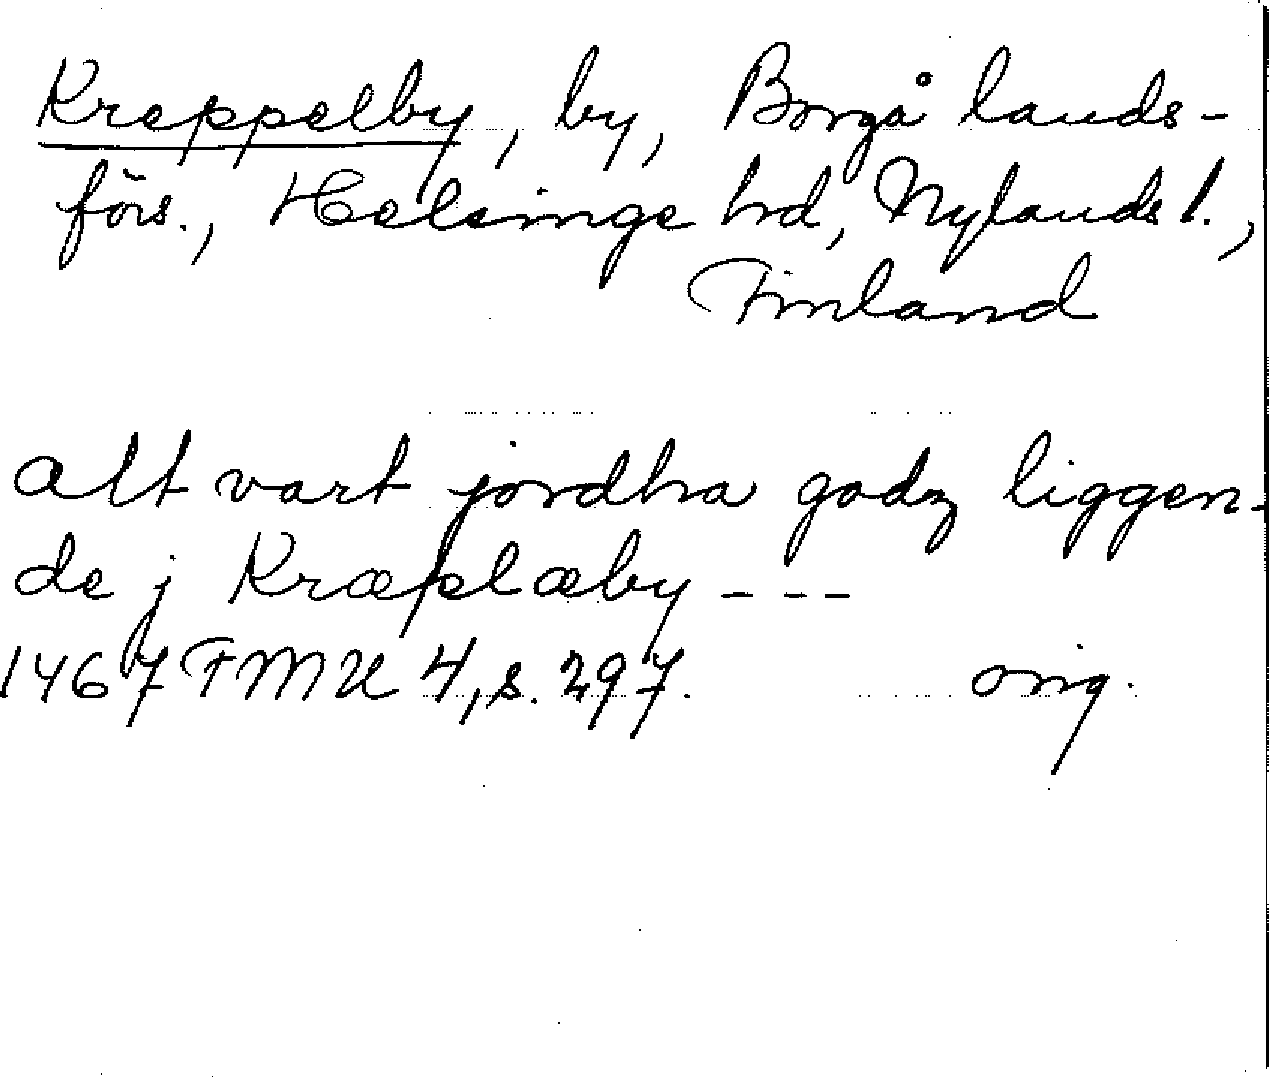 Kreppelby, by, Borgå lands-
förs., Helsinge hd, Nylands l.,
Finland
alt vart jordha godz liggen-
de j Kræplæby - - -
1467 FMU 4, s. 297. orig.